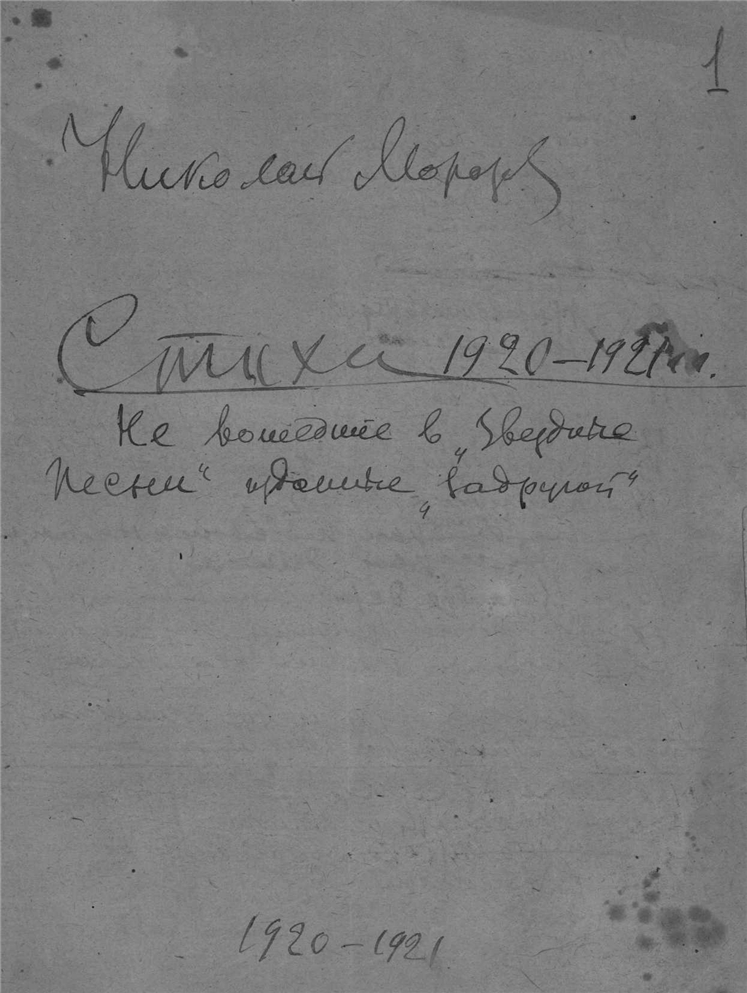 1
Николай Морозов
Стихи 1920–1921 гг.
Не вошедшие в „Звездные
Песни“ изданные „Задругой“
1920–1921